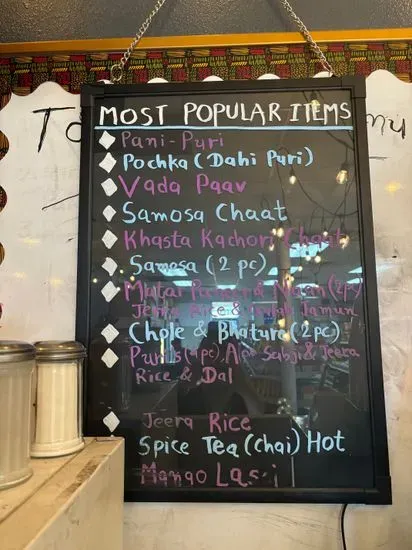 MOST POPULAR ITEMS
Pani-Puri
Pochka (Dahi Puri)
Vada Paav
Samosa Chaat
Khasta Kachori Chaat
Samosa (2 pc)
Mutar Paneer & Naan (2pc)
Jeera Rice & Gulab Jamun
Chole & Bhature (2 pc)
Puris (4pc), Aloo Sabji & Jeera
Rice & Dal
Jeera Rice
Spice Tea (Chai) Hot
Mango Lassi